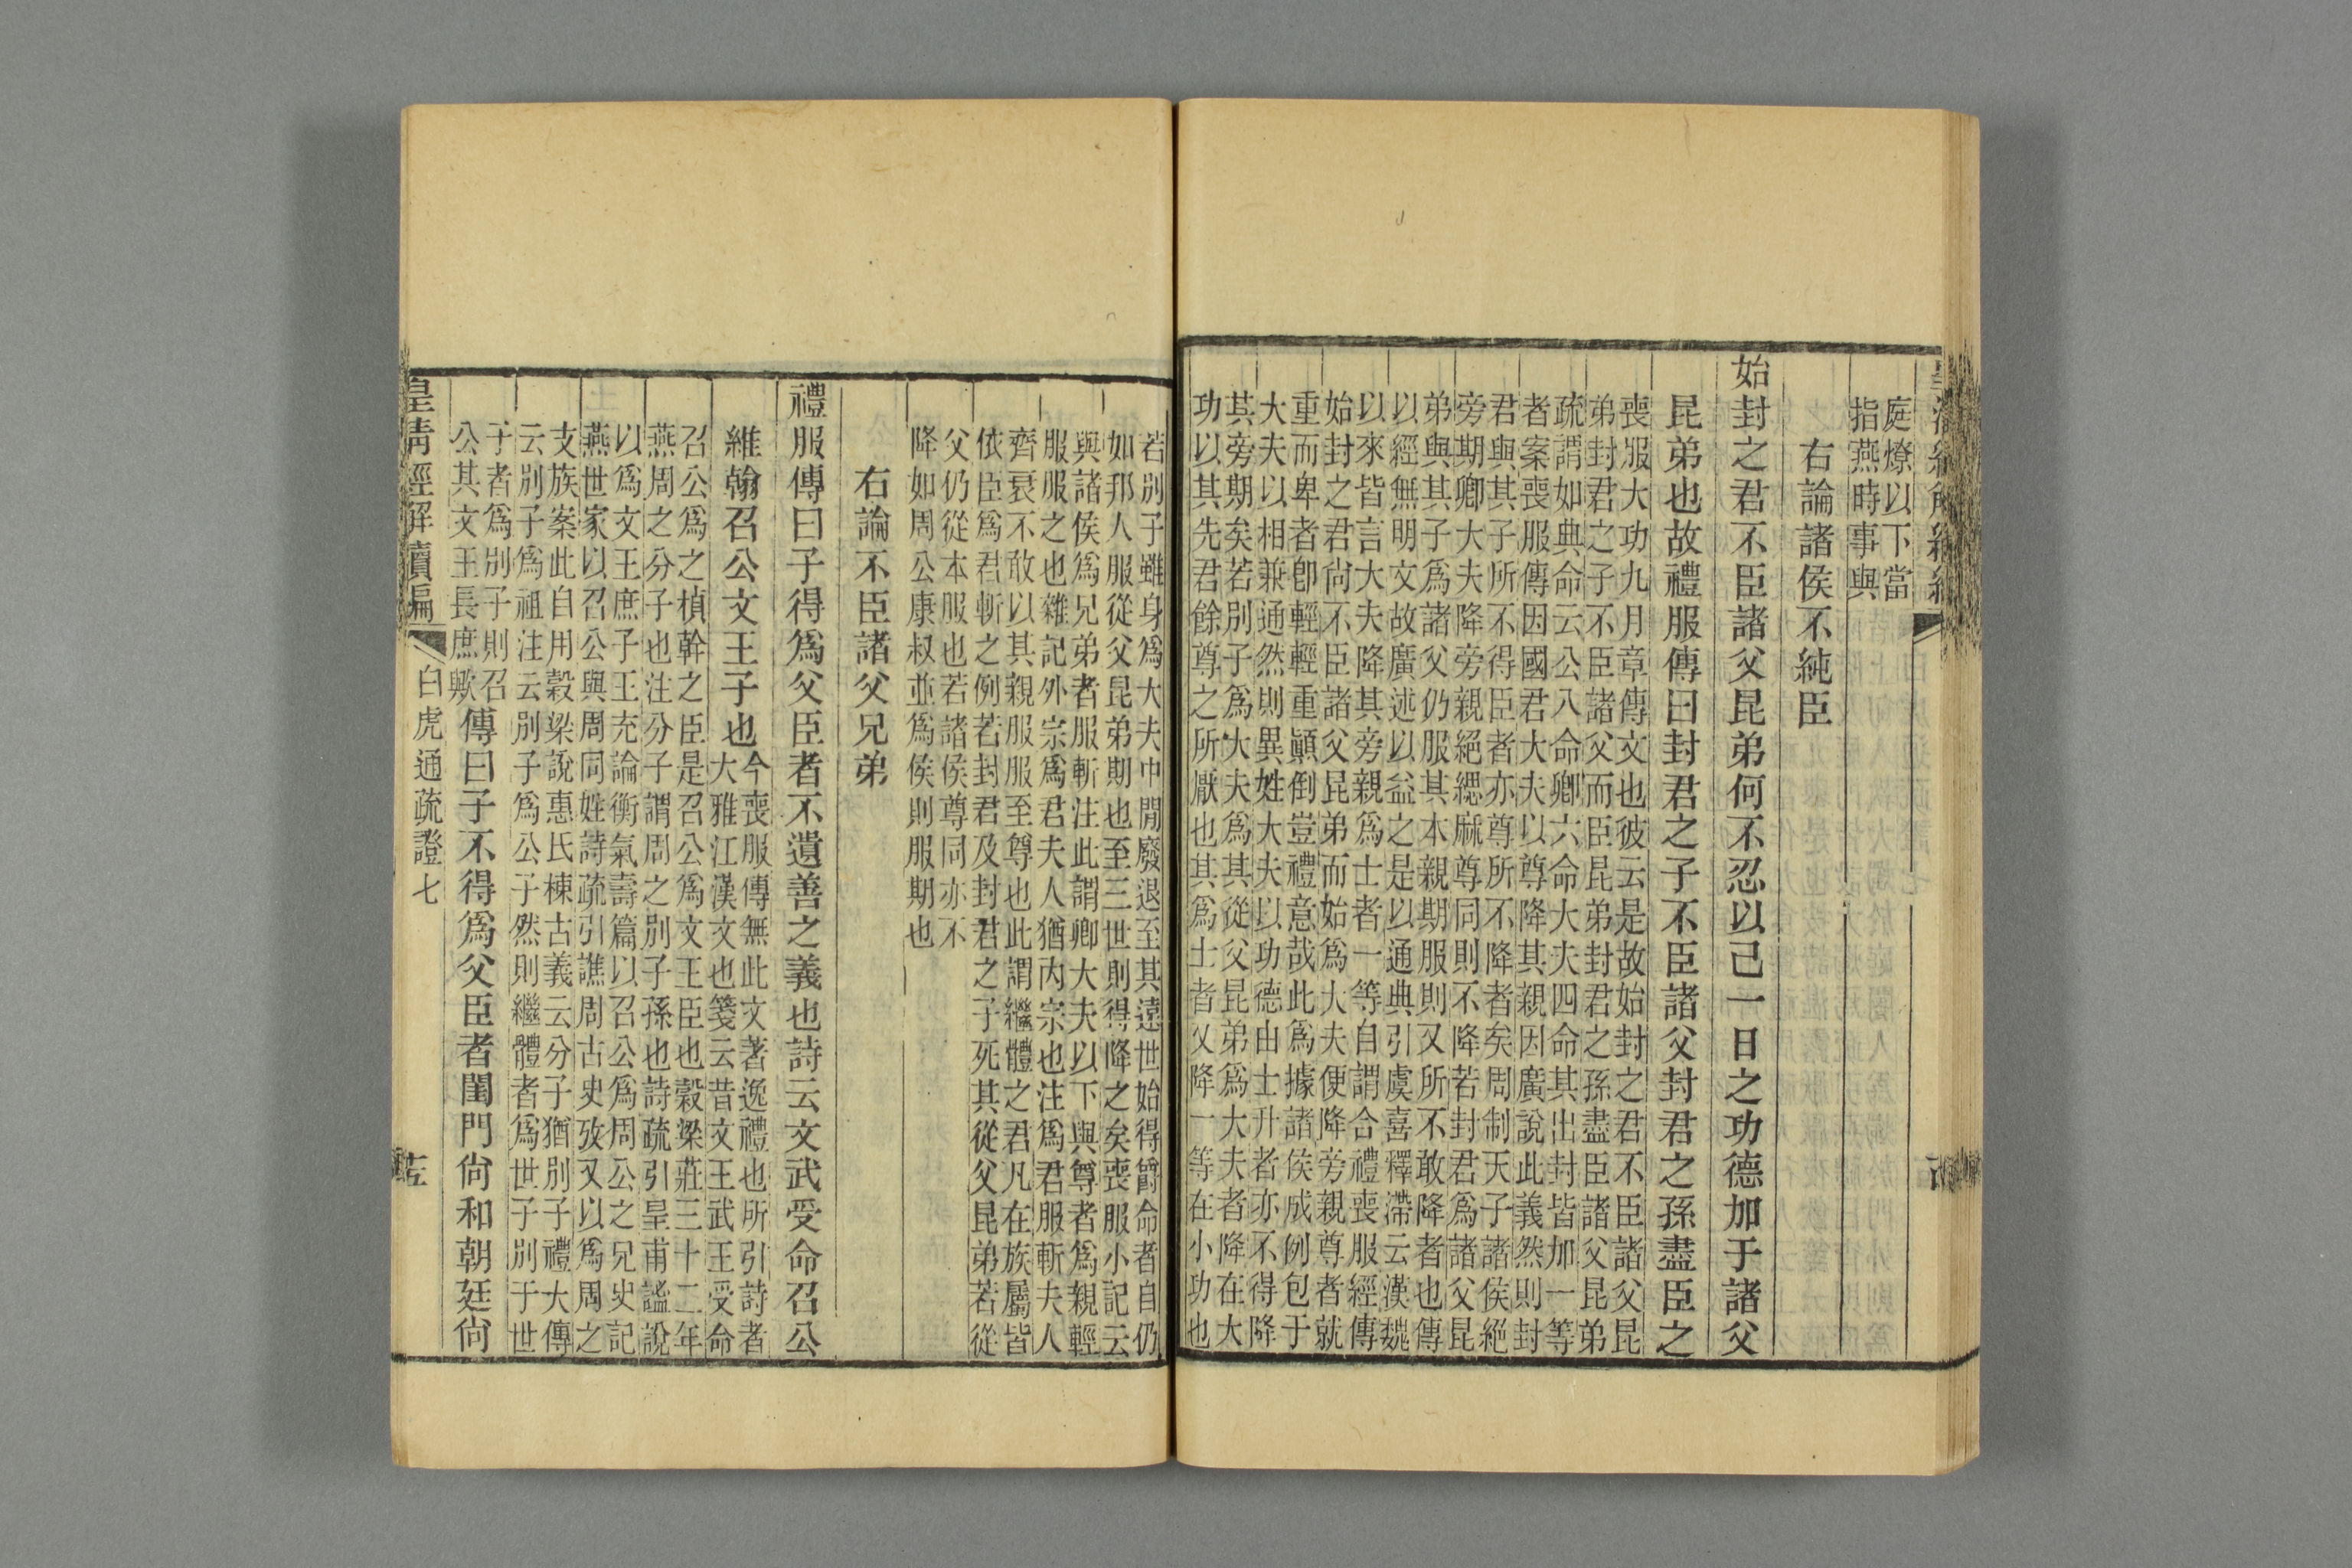 庭燎以下當
指燕時事與
右論諸侯不純臣
始封之君不臣諸父昆弟何不忍以己一日之功德加于諸父
昆弟也故禮服傳曰封君之子不臣諸父封君之孫盡臣之
喪服大功九月章傳文也彼云是故始封之君不臣諸父昆
弟封君之子不臣諸父而臣昆弟封君之孫盡臣諸父昆弟
疏謂如典命云公八命卿六命大夫四命其出封皆加一等
者案喪服傳因國君大夫以尊降其親因廣說此義然則封
君與其子所不得臣者亦尊所不降者矣周制天子諸侯絕
旁期卿大夫降旁親絕緦麻尊同則不降若封君為諸父昆
弟與其子為諸父仍服其本親期服則又所不敢降者也傳
以經無明文故廣述以益之是以通典引虞喜釋滯云漢魏
以來皆言大夫降其旁親為士者一等自謂合禮喪服經傳
始封之君尚不臣諸父昆弟而始為大夫便降旁親尊者就
重而卑者卽輕輕重顚倒豈禮意哉此為據諸侯成例包于
大夫以相兼通然則異姓大夫以功德由士升者亦不得降
其旁期矣若別子為大夫為其從父昆弟為大夫者降在大
功以其先君餘尊之所厭也其為士者又降一等在小功也
若別子雖身為大夫中閒廢退至其遠世始得爵命者自仍
如邦人服從父昆弟期也至三世則得降之矣喪服小記云
與諸侯為兄弟者服斬注此謂卿大夫以下與尊者為親輕
服服之也雜記外宗為君夫人猶內宗也注為君服斬夫人
齊衰不敢以其親服服至尊也此謂繼體之君凡在族屬皆
依臣為君斬之例若封君及封君之子死其從父昆弟若從
父仍從本服也若諸侯尊同亦不
降如周公康叔並為侯則服期也
右論不臣諸父兄弟
禮服傳曰子得為父臣者不遺善之義也詩云文武受命召公
維翰召公文王子也
今喪服傳無此文著逸禮也所引詩者
大雅江漢文也箋云昔文王武王受命
召公為之楨幹之臣是召公為文王臣也穀梁莊三十二年
燕周之分子也注分子謂周之別子孫也詩疏引皇甫謐說
以為文王庶子王充論衡氣壽篇以召公為周公之兄史記
燕世家以召公與周同姓詩疏引譙周古史攷又以為周之
支族案此自用穀梁說惠氏棟古義云分子猶別子禮大傳
云別子為祖注云別子為公子然則繼體者為世子別于世
子者為別子則召
公其文王長庶歟
傳曰子不得為父臣者閨門尚和朝廷尚
皇清經解續編
白虎通疏證七